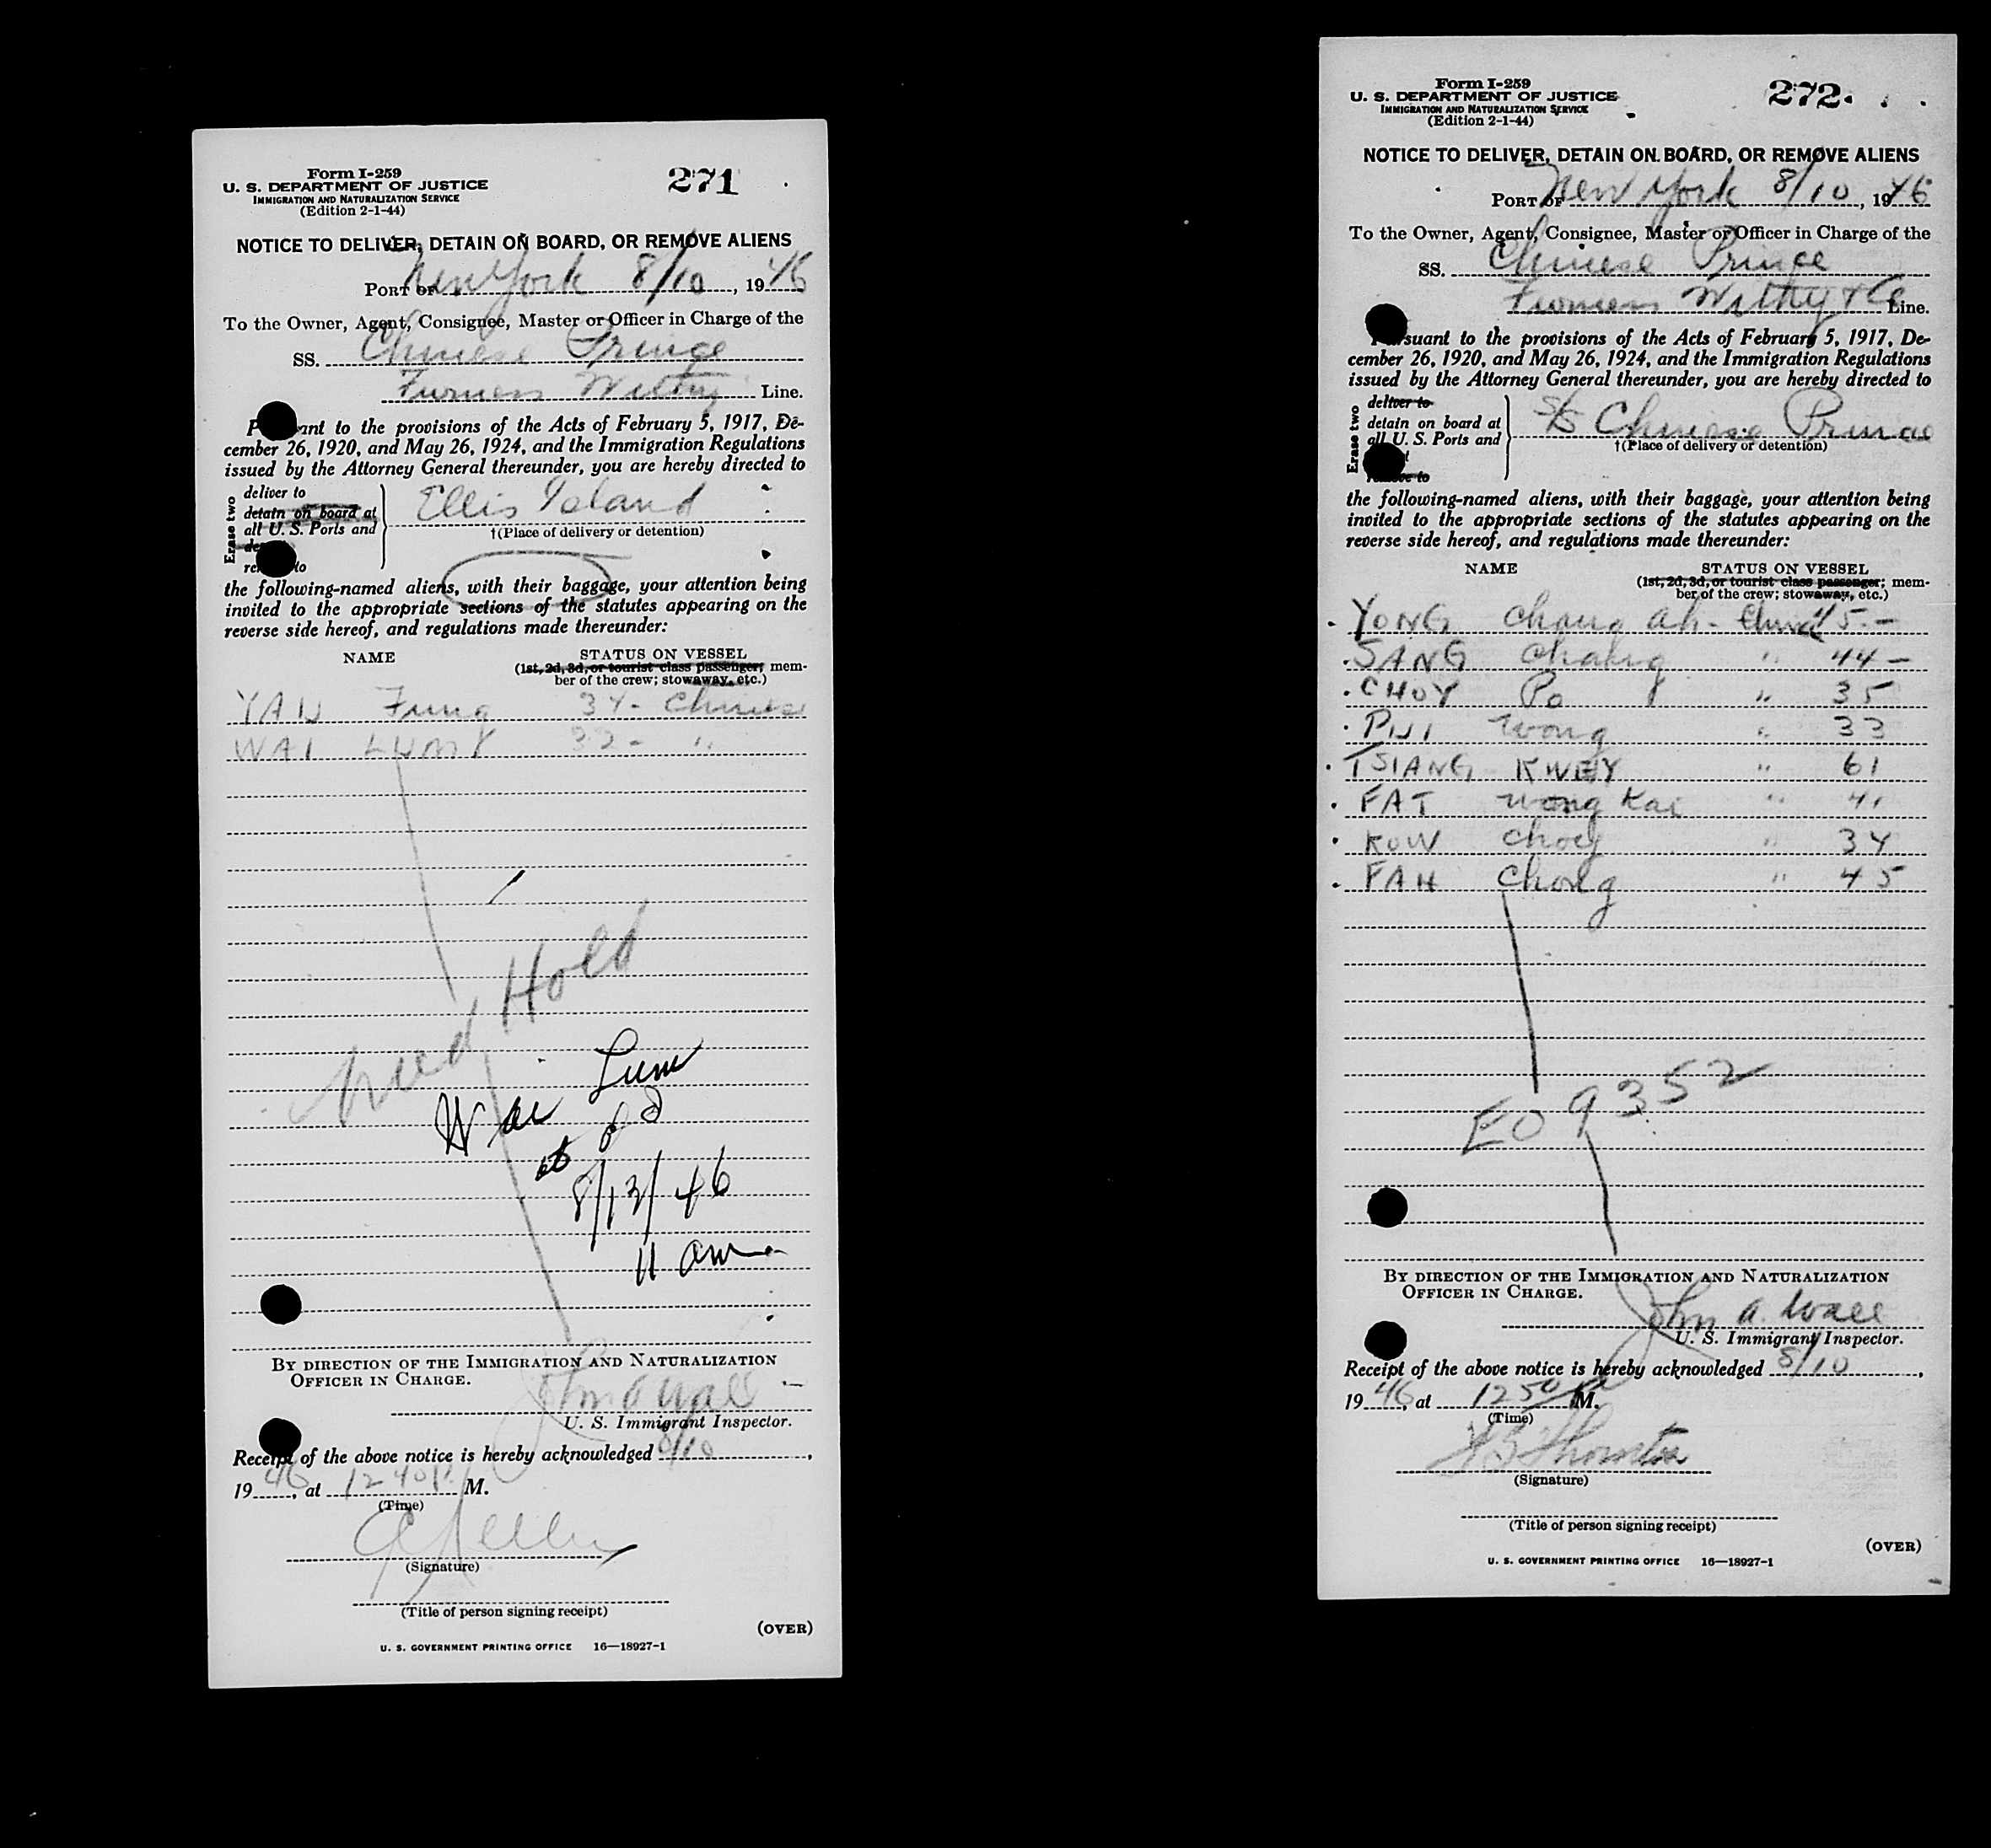 Form I-259
U. S. DEPARTMENT OF JUSTICE
IMMIGRATION AND NATURALIZATION SERVICE
(Edition 2-1-44)
271
NOTICE TO DELIVER, DETAIN ON BOARD, OR REMOVE ALIENS
PORT OF New York 8/10, 1946
To the Owner, Agent, Consignee, Master or Officer in Charge of the
SS. Chinese Prince
Furness Withy Line.
ant to the provisions of the Acts of February 5, 1917, De-
cember 26, 1920, and May 26, 1924, and the Immigration Regulations
issued by the Attorney General thereunder, you are hereby directed to
Erase two
deliver to
detain on board at
all U. S. Ports and
to
Ellis Island
†(Place of delivery or detention)
the following-named aliens, with their baggage, your attention being
invited to the appropriate sections of the statutes appearing on the
reverse side hereof, and regulations made thereunder:
NAME STATUS ON VESSEL
(1st, 2d, 3d, or tourist class passenger; mem-
ber of the crew; stowaway, etc.)
YAN Fung 34 - Chinese
WAI 32 - "
Hold
Wai Lum
8/13/46
11 am
BY DIRECTION OF THE IMMIGRATION AND NATURALIZATION
OFFICER IN CHARGE.
John A Wall
U. S. Immigrant Inspector.
Receipt of the above notice is hereby acknowledged 8/10,
1946, at 12 40 P. M.
(Time)
(Signature)
(Title of person signing receipt)
(OVER)
U. S. GOVERNMENT PRINTING OFFICE 16—18927-1
Form I-259
U. S. DEPARTMENT OF JUSTICE
IMMIGRATION AND NATURALIZATION SERVICE
(Edition 2-1-44)
272
NOTICE TO DELIVER, DETAIN ON BOARD, OR REMOVE ALIENS
PORT OF New York 8/10, 1946
To the Owner, Agent, Consignee, Master or Officer in Charge of the
SS. Chinese Prince
Furness Withy & Co Line.
suant to the provisions of the Acts of February 5, 1917, De-
cember 26, 1920, and May 26, 1924, and the Immigration Regulations
issued by the Attorney General thereunder, you are hereby directed to
Erase two
deliver to
detain on board at
all U. S. Ports and
remove to
S/S Chinese Prince
†(Place of delivery or detention)
the following-named aliens, with their baggage, your attention being
invited to the appropriate sections of the statutes appearing on the
reverse side hereof, and regulations made thereunder:
NAME STATUS ON VESSEL
(1st, 2d, 3d, or tourist class passenger; mem-
ber of the crew; stowaway, etc.)
YONG Chang Ah - China 45 -
SANG Chang " 44 -
CHOY Po " 35
PUI Wong " 33
TSIANG KWEY " 61
FAT Wong Kai " 41
KOW Choy " 34
FAH Chong " 45
EO 9352
BY DIRECTION OF THE IMMIGRATION AND NATURALIZATION
OFFICER IN CHARGE.
John A. Wall
U. S. Immigrant Inspector.
Receipt of the above notice is hereby acknowledged 8/10,
1946, at 12 50 M.
(Time)
Thornton
(Signature)
(Title of person signing receipt)
(OVER)
U. S. GOVERNMENT PRINTING OFFICE 16—18927-1